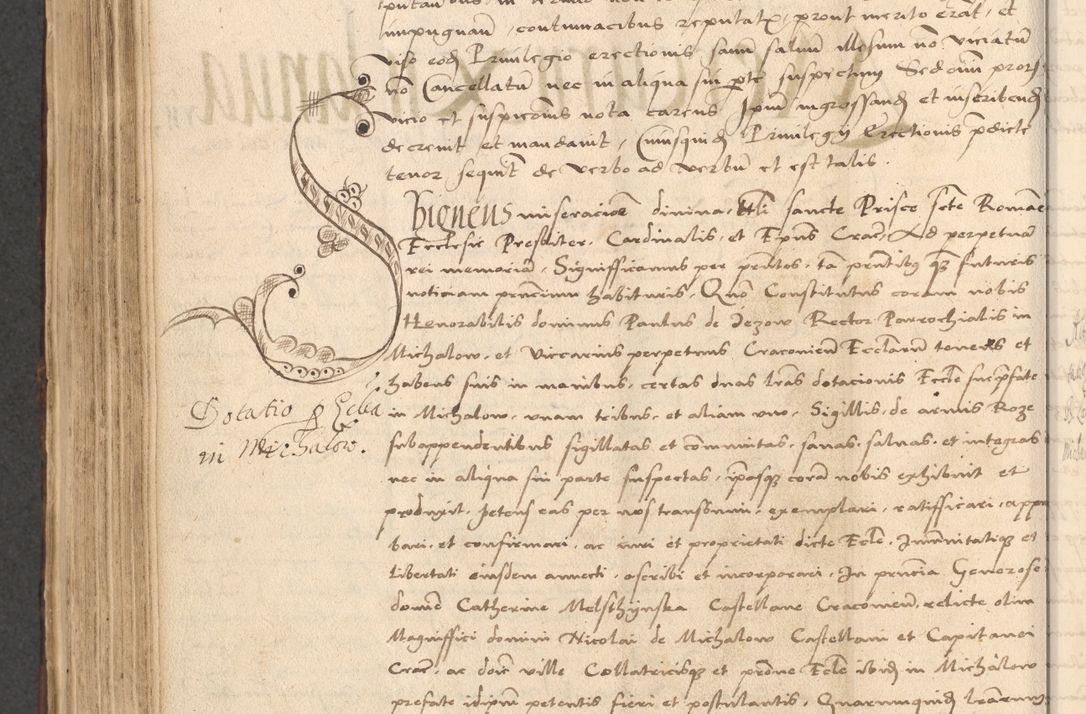 impugnan̄ contumacibus reputatꝫ, prout merito erat, et
viso eod Privilegio erectionis sanū salvum illesum nō viciatū
nō Cancellatū nec in aliqua sui pte suspectum Sed omi prorsꝫ
vicio et suspicionis nota carens Ipsūm ingrossand et inscribend
decrevit et mandavit, Cuiusquid Privilegii Erectionis pdicte
tenor sequit de verbo ad verbū et est talis.
Sbigneus miseracione divina, tt̄li sancte Prisce scte Romane
Ecclesie Presbiter, Cardinalis, et Epus Crac, Ad perpetuam
rei memoriā, Significamus per pntes, tā pntibꝫ qꝫ futuris
noticiam pncium habituris, Quō Constitutus coram nobis
Honorabilis dominus Paulus de Jezow Rector Parrochialis in
Michalow, et Viccarius perpetuus Cracovien Ecclarū tenens et
habens suis in manibus, certas duas lras dotacionis Eccle suepfate
in Michalow, unam tribus, et aliam uno, Sigillis, de armis Roze
subappendentibus sigillatas et communitas, sanas, salvas, et integras
nec in aliqua sui parte suspectas, ipasqꝫ corā nobis exhibuit et
produxit, petens eas per nos transsumi, exemplari, ratifficari, appro
bari, et confirmari, ac iuri et proprietati dicte Eccle, Imūnitatiqꝫ et
Libertati eiusdem annecti, ascribi et incorporari, In pncia Generose
domne Catherine Melschynska Castellane Cracovien, relicte olim
Magniffici domini Nicolai de Michalow Castellani et Capitanei
Crac, ac doīc ville Collatricisqꝫ et prōne Eccle ibid in Michalow
prefate idipm petentis fieri et postulantis, Quarumquid lrarum
Dotatio p Eccla
in Michalow.